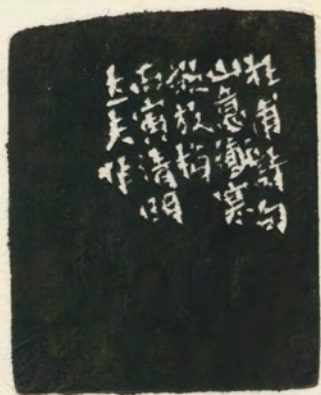 杜甫詩句
山意衝寒
欲放梅
丙寅清明
大夫作